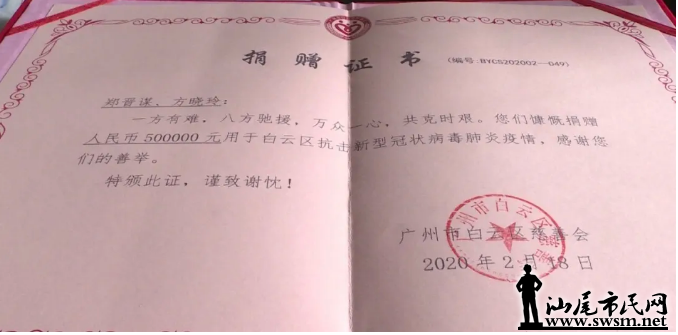 捐赠证书
(编号:BYCS202002—G49)
郑晋谋、方晓玲:
一方有难,八方驰援,万众一心,共克时艰。您们慷慨捐赠
人民币500000元用于白云区抗击新型冠状病毒肺炎疫情,感谢您
们的善举。
特颁此证,谨致谢忱!
广州市白云区慈善会
2020年2月18日
广州市白云区慈善会
汕尾市民网
www.swsm.net